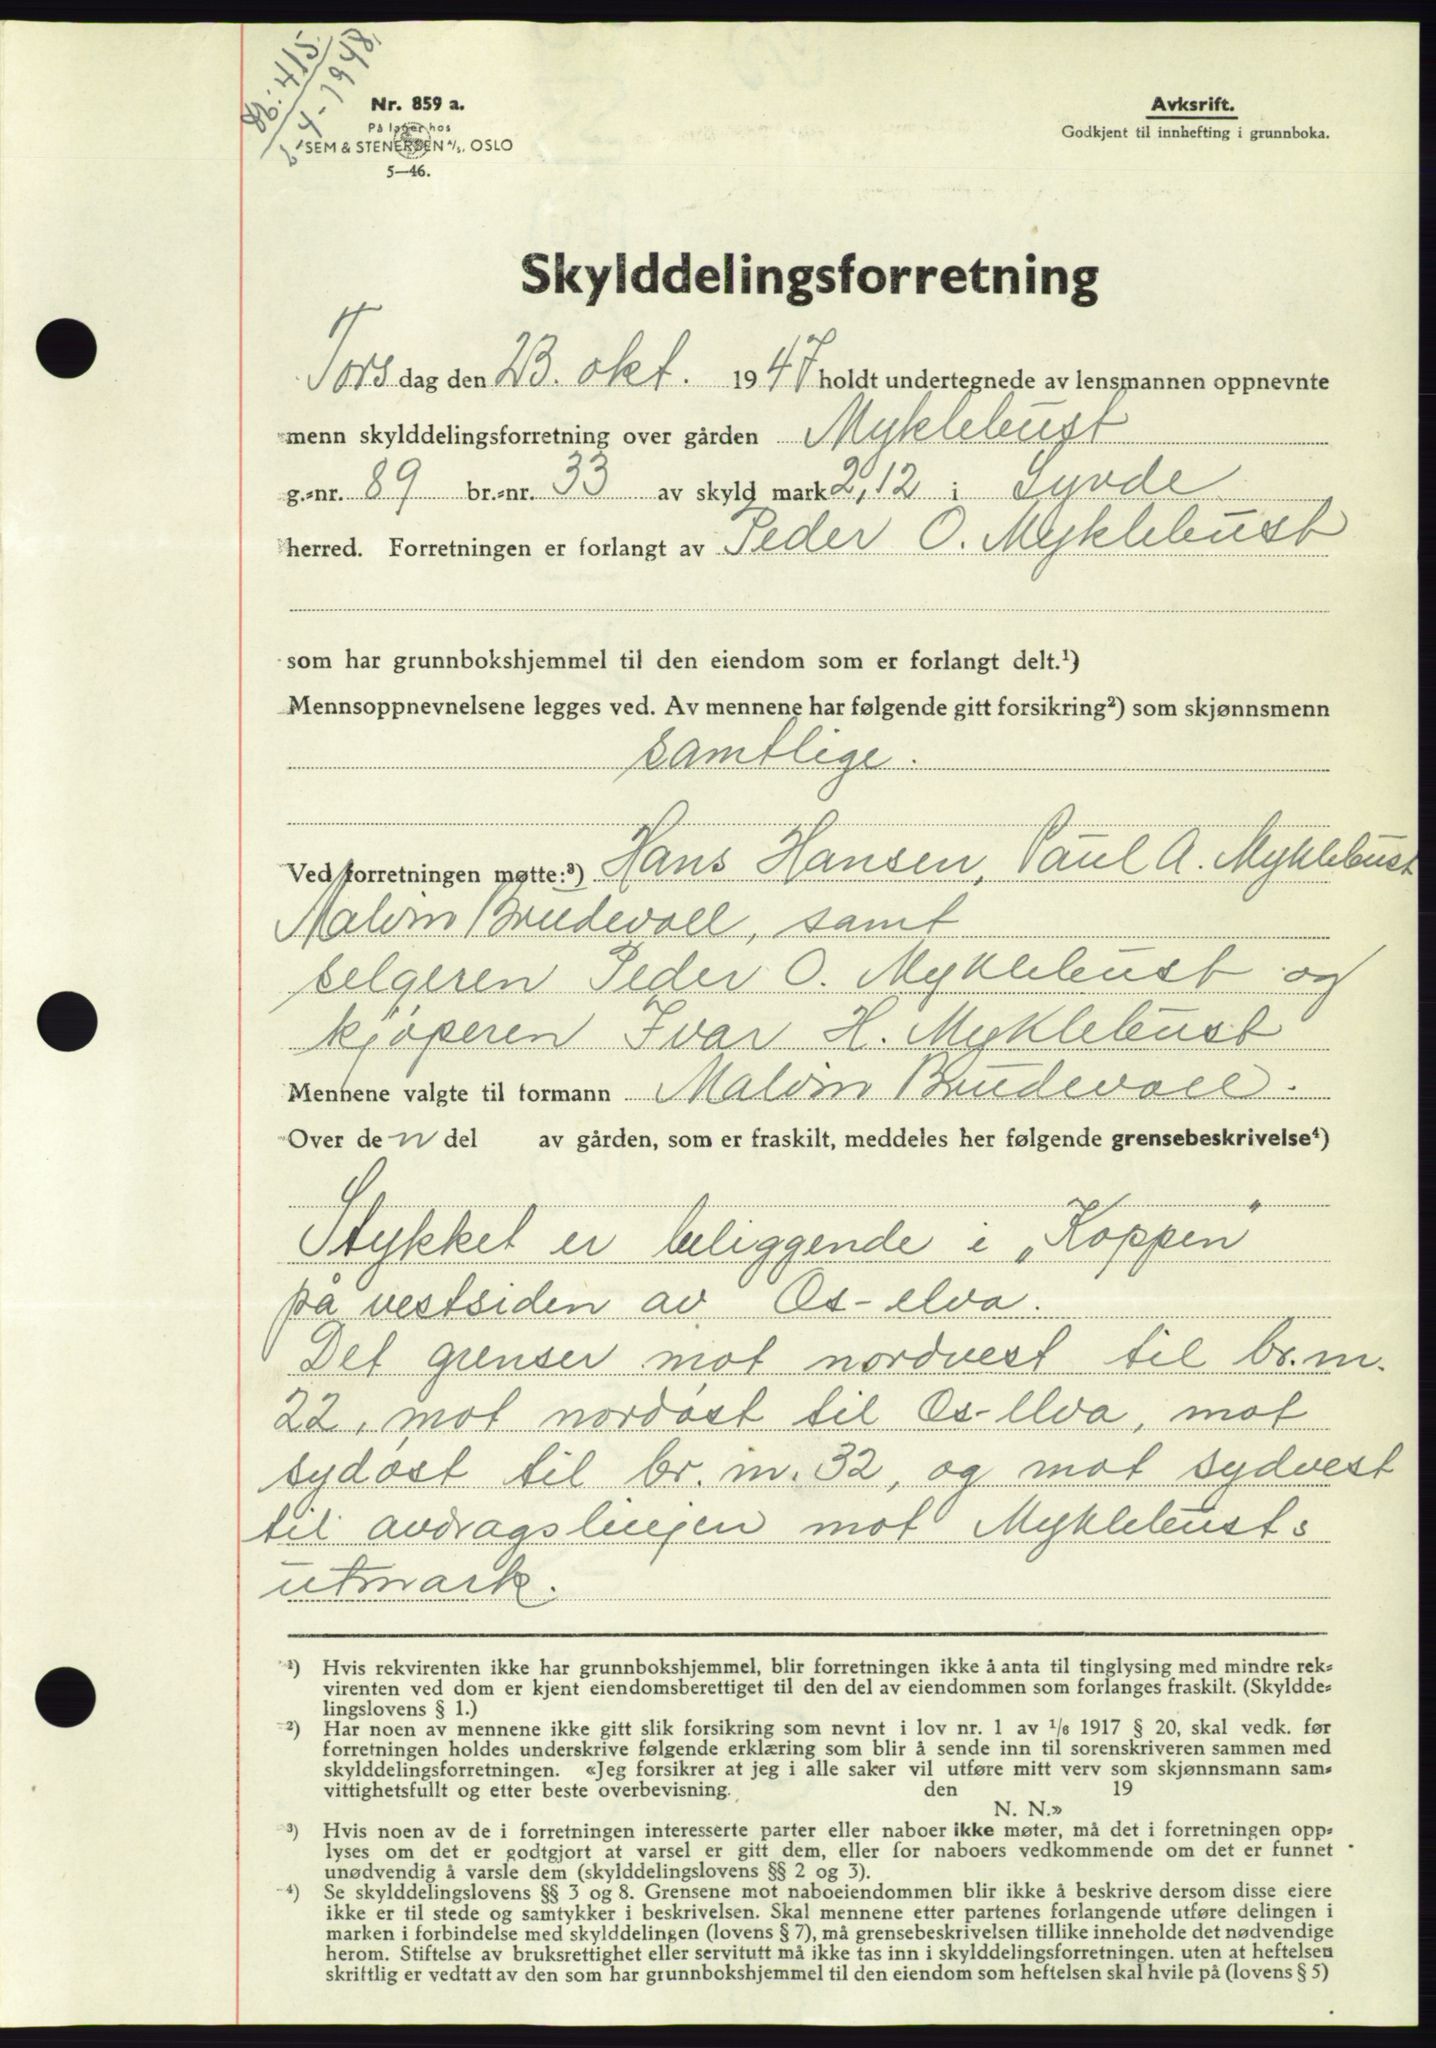 db: 415
6/4-1948
Nr. 859 a.
På lager hos
SEM & STENERSEN A/S, OSLO
5—46.
Avksrift.
Godkjent til innhefting i grunnboka.
Skylddelingsforretning
Tors dag den 23. okt. 1947 holdt undertegnede av lensmannen oppnevnte
menn skylddelingsforretning over gården Myklebust
g.-nr. 89 br.-nr. 33 av skyld mark 2,12 i Syvde
herred. Forretningen er forlangt av Peder O. Myklebust
som har grunnbokshjemmel til den eiendom som er forlangt delt.¹)
Mennsoppnevnelsene legges ved. Av mennene har følgende gitt forsikring²) som skjønnsmenn
samtlige.
Ved forretningen møtte:³) Hans Hansen, Paul A. Myklebust
Malvin Brudevoll, samt
selgeren Peder O. Myklebust og
kjøperen Ivar H. Myklebust
Mennene valgte til formann Malvin Brudevoll.
Over de n del av gården, som er fraskilt, meddeles her følgende grensebeskrivelse⁴)
Stykket er beliggende i „Koppen"
på vestsiden av Os-elva.
Det grenser mot nordvest til br. nr.
22, mot nordøst til Os-elva, mot
sydøst til br. nr. 32, og mot sydvest
til avdragslinjen mot Myklebusts
utmark.
¹) Hvis rekvirenten ikke har grunnbokshjemmel, blir forretningen ikke å anta til tinglysing med mindre rek-
virenten ved dom er kjent eiendomsberettiget til den del av eiendommen som forlanges fraskilt. (Skyldde-
lingslovens § 1.)
²) Har noen av mennene ikke gitt slik forsikring som nevnt i lov nr. 1 av 1/8 1917 § 20, skal vedk. før
forretningen holdes underskrive følgende erklæring som blir å sende inn til sorenskriveren sammen med
skylddelingsforretningen. «Jeg forsikrer at jeg i alle saker vil utføre mitt verv som skjønnsmann sam-
vittighetsfullt og etter beste overbevisning. den 19
N. N.»
³) Hvis noen av de i forretningen interesserte parter eller naboer ikke møter, må det i forretningen opp-
lyses om det er godtgjort at varsel er gitt dem, eller for naboers vedkommende om det er funnet
unødvendig å varsle dem (skylddelingslovens §§ 2 og 3).
⁴) Se skylddelingslovens §§ 3 og 8. Grensene mot naboeiendommen blir ikke å beskrive dersom disse eiere
ikke er til stede og samtykker i beskrivelsen. Skal mennene etter partenes forlangende utføre delingen i
marken i forbindelse med skylddelingen (lovens § 7), må grensebeskrivelsen tillike inneholde det nødvendige
herom. Stiftelse av bruksrettighet eller servitutt må ikke tas inn i skylddelingsforretningen. uten at heftelsen
skriftlig er vedtatt av den som har grunnbokshjemmel til den eiendom som heftelsen skal hvile på (lovens § 5)